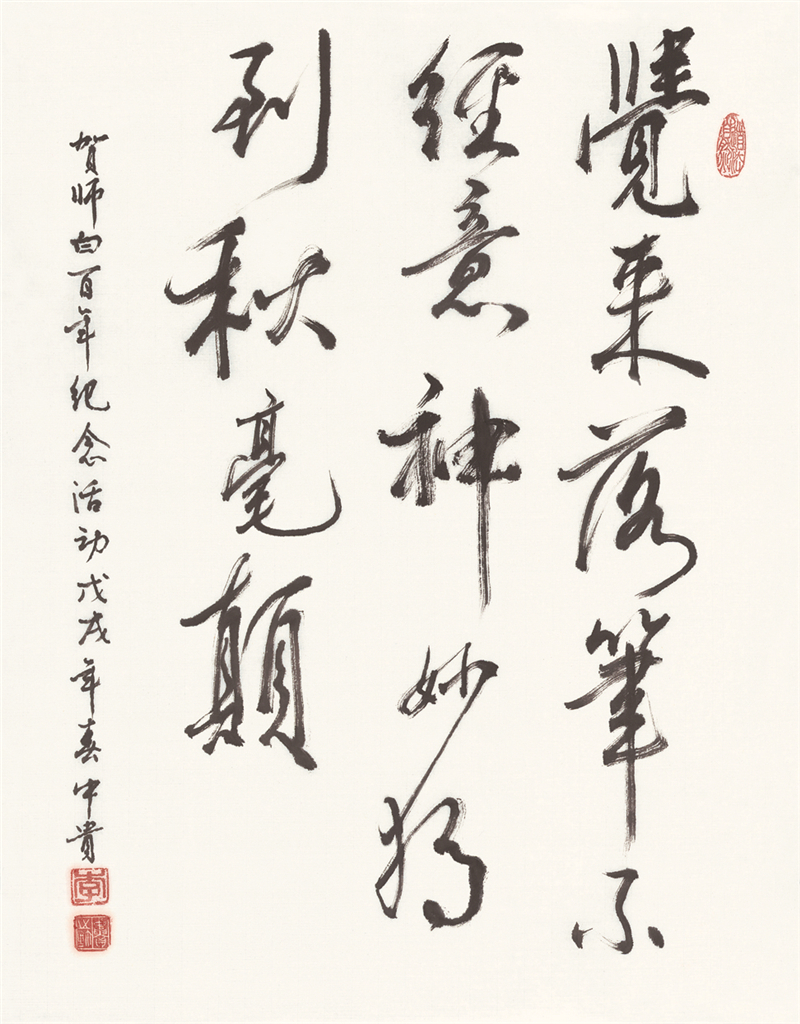 覺来落筆不
經意神妙獨
到秋毫顛
贺师白百年纪念活动戊戌年春中貴